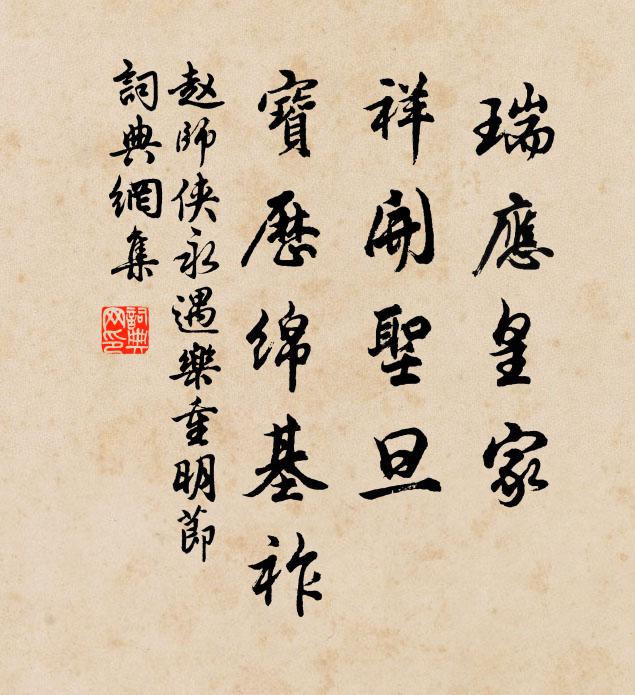 瑞應皇家
祥開聖旦
寶歷綿基祚
赵師俠永遇樂重明節
詞典網集
詞典网印